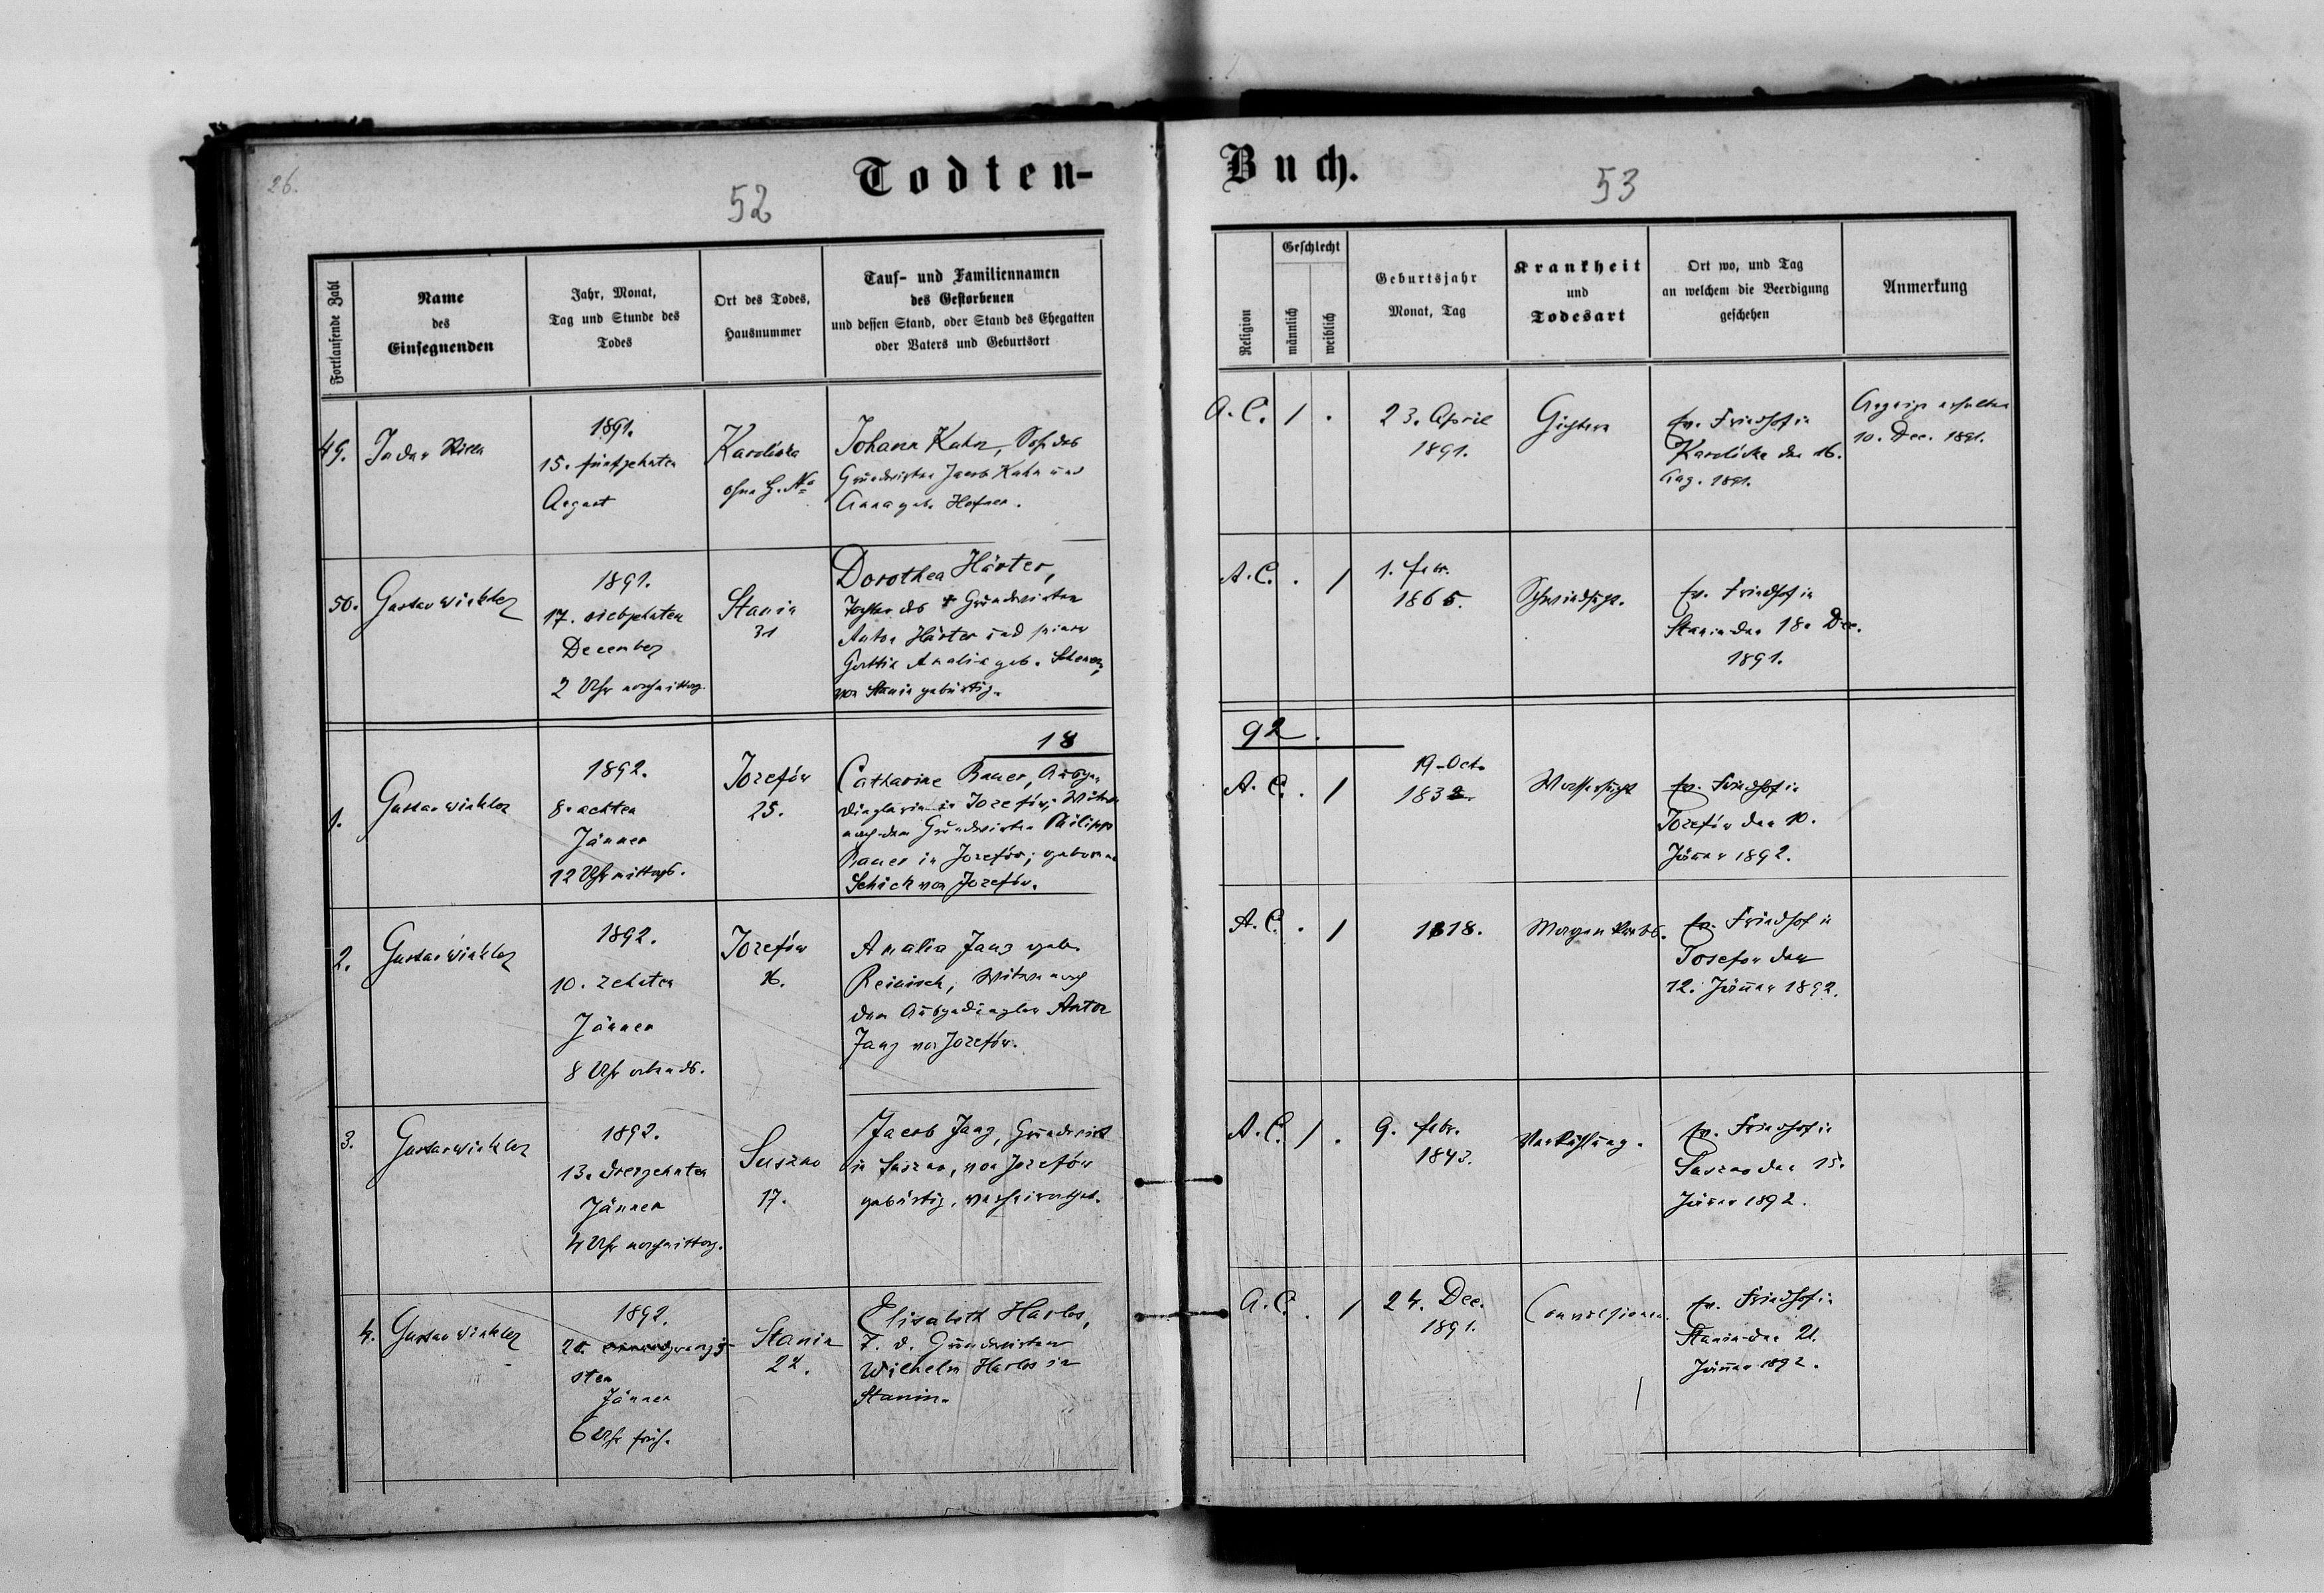 26.
52
Todten-
Buch.
53
Fortlaufende Zahl
Name
des
Einsegnenden
Jahr, Monat,
Tag und Stunde des
Todes
Ort des Todes,
Hausnummer
Tauf- und Familiennamen
des Gestorbenen
und dessen Stand, oder Stand des Ehegatten
oder Vaters und Geburtsort
Religion
Geschlecht
männlich
weiblich
Geburtsjahr
Monat, Tag
Krankheit
und
Todesart
Ort wo, und Tag
an welchem die Beerdigung
geschehen
Anmerkung
49.
1891.
15. fünfzehnten
August
Karolinka
ohne H. No
Johann Kuhn, Sohn des
Grundwirten Jacob Kuhn und
Anna geb. Hefner.
A. C. / .
23. April
1891.
Gichtern
ev. Friedhof in
den 16.
Aug. 1891.
Anzeige erhalten
10. Dec. 1891.
50.
Gustav Winkler
1891.
17. siebzehnten
December
2 Uhr nachmittag.
Stanin
31
Dorothea Härter,
Tochter des † Grundwirten
Anton Härter und seiner
Gattin Amalia geb.
von Stanin gebürtig.
A. C. . /
1. febr.
1865.
Schwindsucht.
ev. Friedhof in
Stanin den 18. Dec.
1891.
18
92.
1.
Gustav Winkler
1892.
8. achten
Jänner
12 Uhr mittags.
Jozefów
25.
Catharine Bauer, Ausge-
dinglerin in Jozefów, Witwe
nach dem Grundwirten Philipp
Bauer in Jozefów; geborene
Schick von Jozefów.
A. C. . /
19. Oct.
1832.
Wassersucht
ev. Friedhof in
Jozefów den 10.
Jänner 1892.
2.
Gustav Winkler
1892.
10. zehnten
Jänner
8 Uhr abends.
Jozefów
16.
Amalia Janz geb.
Reinisch, Witwe nach
dem Ausgedingler Anton
Janz von Jozefów.
A. C. . /
1818.
Magenkrebs.
ev. Friedhof in
Josefow den
12. Jänner 1892.
3.
Gustav Winkler
1892.
13. dreizehnten
Jänner
4 Uhr nachmittag.
Suszno
17.
Jacob Janz, Grundwirt
in Suszno, von Jozefów
gebürtig, verheirathet.
A. C. / .
9. febr.
1843.
Verkühlung.
ev. Friedhof in
Suszno den 15.
Jänner 1892.
4.
Gustav Winkler
1892.
sten
Jänner
6 Uhr früh.
Stanin
22.
Elisabeth Harlos,
T. d. Grundwirten
Wilhelm Harlos in
Stanin.
A. C. . /
24. Dec.
1891.
Convulsionen.
ev. Friedhof in
Stanin den 21.
Jänner 1892.